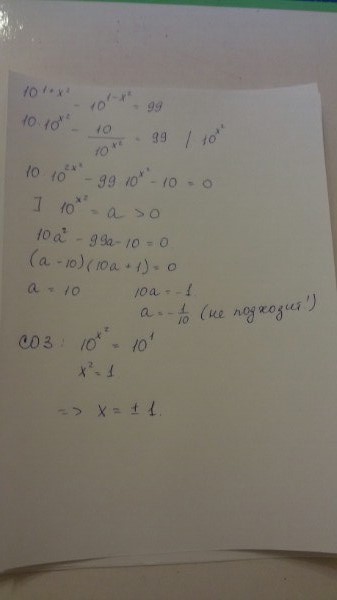 10^(1+x²) - 10^(1-x²) = 99
10·10^(x²) - 10/10^(x²) = 99 / 10^(x²)
10·10^(2x²) - 99·10^(x²) - 10 = 0
] 10^(x²) = a > 0
10a² - 99a - 10 = 0
(a - 10)(10a + 1) = 0
a = 10 10a = -1
a = -1/10 (не подходит!)
СОЗ: 10^(x²) = 10¹
x² = 1
=> x = ± 1.